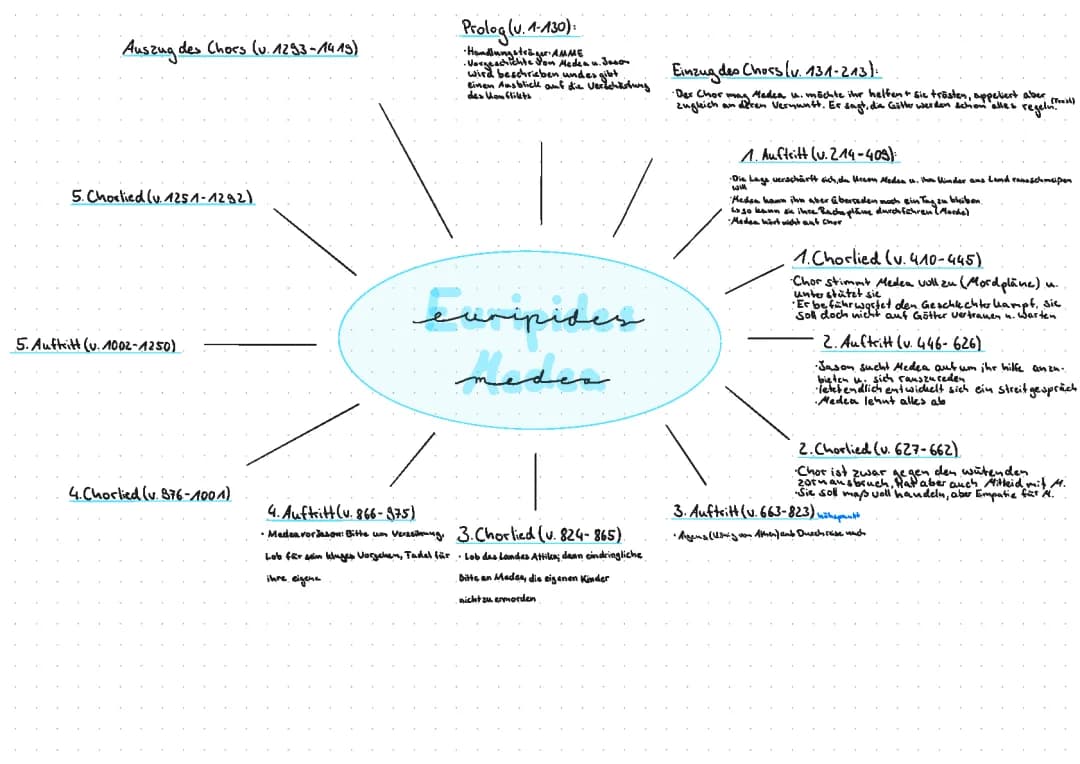 Prolog (v. 1-130):
·Handlungsträger: AMME
·Vorgeschichte von Medea u. Jason
wird beschrieben und es gibt
einen Ausblick auf die Verschärfung
des Konflikts
Einzug des Chors (v. 131-213):
·Der Chor mag Medea u. möchte ihr helfen + sie trösten, appeliert aber
zugleich an deren Vernunft. Er sagt, die Götter werden schon alles regeln.
1. Auftritt (v. 214-409):
·Die Lage verschärft sich, da Kreon Medea u. ihre Kinder aus Land rausschmeißen
will
·Medea kann ihn aber überreden noch ein Tag zu bleiben
↳ so kann sie ihre Rachepläne durchführen (Morde)
·Medea hört nicht auf Chor
1. Chorlied (v. 410-445)
·Chor stimmt Medea voll zu (Mordpläne) u.
unterstützt sie
·Er befürwortet den Geschlechterkampf, sie
soll doch nicht auf Götter vertrauen u. warten
2. Auftritt (v. 446- 626)
·Jason sucht Medea auf um ihr hilfe anzu-
bieten u. sich rauszureden
·letztendlich entwickelt sich ein streitgespräch
·Medea lehnt alles ab
2. Chorlied (v. 627-662)
·Chor ist zwar gegen den wütenden
zornausbruch, hat aber auch Mitleid mit M.
·Sie soll maßvoll handeln, aber Empatie für M.
3. Auftritt (v. 663-823) höhepunkt
· Aigeus (König von Athen) auf Durchreise nach
3. Chorlied (v. 824- 865)
· Lob des Landes Attika; dann eindringliche
Bitte an Medea, die eigenen Kinder
nicht zu ermorden
4. Auftritt (v. 866-975)
· Medea vor Jason: Bitte um Versöhnung,
Lob für sein kluges Vorgehen, Tadel für
ihre eigene
4. Chorlied (v. 976-1001)
5. Auftritt (v. 1002-1250)
5. Chorlied (v. 1251-1292)
Auszug des Chors (v. 1293-1419)
Euripides
euripides
Medea
medea